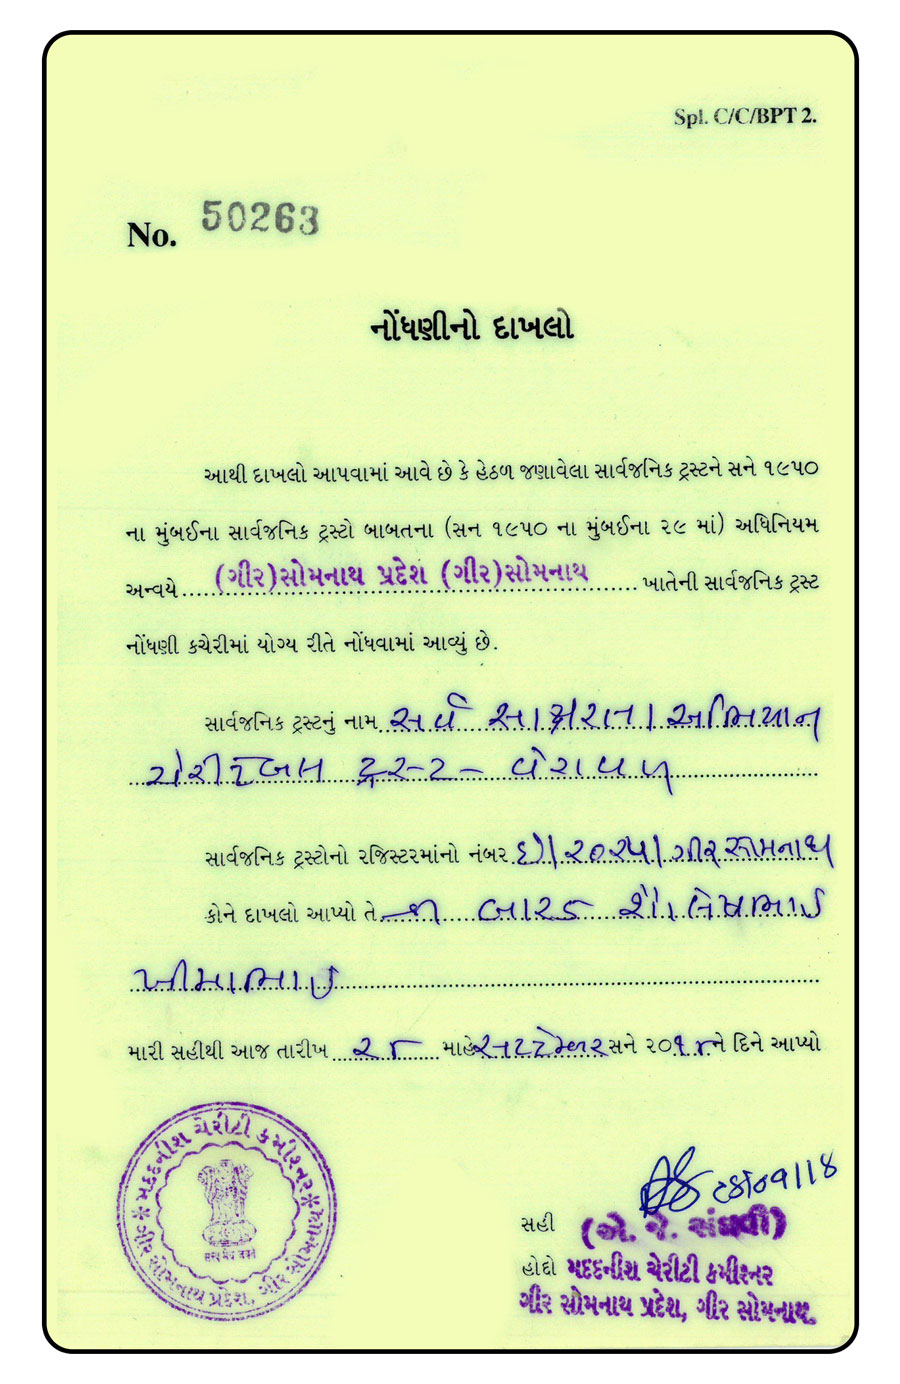 Spl. C/C/BPT 2.
No. 50263
નોંધણીનો દાખલો
આથી દાખલો આપવામાં આવે છે કે હેઠળ જણાવેલા સાર્વજનિક ટ્રસ્ટને સને ૧૯૫૦
ના મુંબઈના સાર્વજનિક ટ્રસ્ટો બાબતના (સન ૧૯૫૦ ના મુંબઈના ૨૯ માં) અધિનિયમ
અન્વયે (ગીર)સોમનાથ પ્રદેશ (ગીર)સોમનાથ ખાતેની સાર્વજનિક ટ્રસ્ટ
નોંધણી કચેરીમાં યોગ્ય રીતે નોંધવામાં આવ્યું છે.
સાર્વજનિક ટ્રસ્ટનું નામ સર્વ સાક્ષરતા અભિયાન
ચેરીટેબલ ટ્રસ્ટ - વેરાવળ
સાર્વજનિક ટ્રસ્ટોનો રજિસ્ટરમાંનો નંબર ગીર સોમનાથ
કોને દાખલો આપ્યો તે શ્રી બારડ શૈલેષભાઈ
ખીમાભાઈ
મારી સહીથી આજ તારીખ માહે સપ્ટેમ્બર સને ૨૦૧૮ને દિને આપ્યો
મદદનીશ ચેરીટી કમીશ્નર
ગીર સોમનાથ પ્રદેશ, ગીર સોમનાથ
सत्यमेव जयते
સહી (એ. જે. સંઘવી)
હોદ્દો મદદનીશ ચેરીટી કમીશ્નર
ગીર સોમનાથ પ્રદેશ, ગીર સોમનાથ.